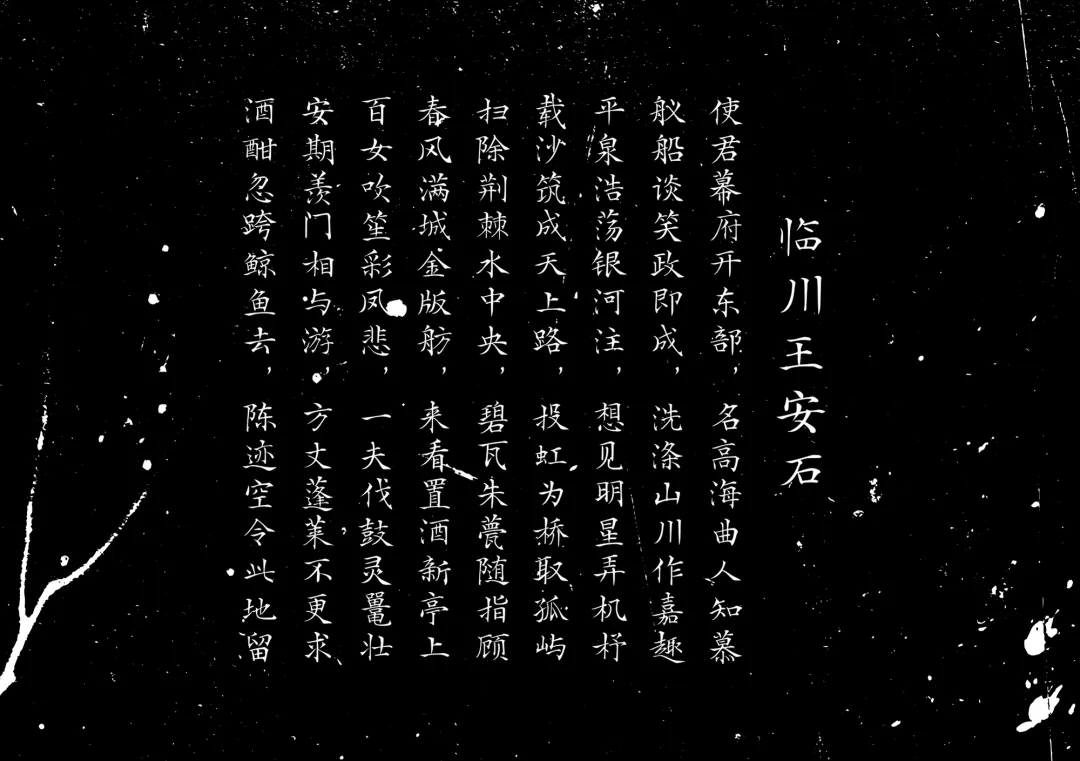 临川王安石
使君幕府开东部，名高海曲人知慕
舣船谈笑政即成，洗涤山川作嘉趣
平泉浩荡银河注，想见明星弄机杼
载沙筑成天上路，投虹为桥取孤屿
扫除荆棘水中央，碧瓦朱甍随指顾
春风满城金版舫，来看置酒新亭上
百女吹笙彩凤悲，一夫伐鼓灵鼍壮
安期羡门相与游，方丈蓬莱不更求
酒酣忽跨鲸鱼去，陈迹空令此地留